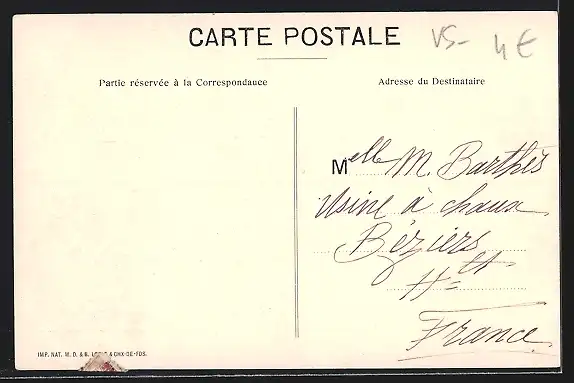 CARTE POSTALE
VS- 4€
Partie réservée à la Correspondance
Adresse du Destinataire
Melle M. Barthès
Usine à chaux
Béziers
Hlt
France
IMP. NAT. W. D. & B. & CHX-DE-FDS.